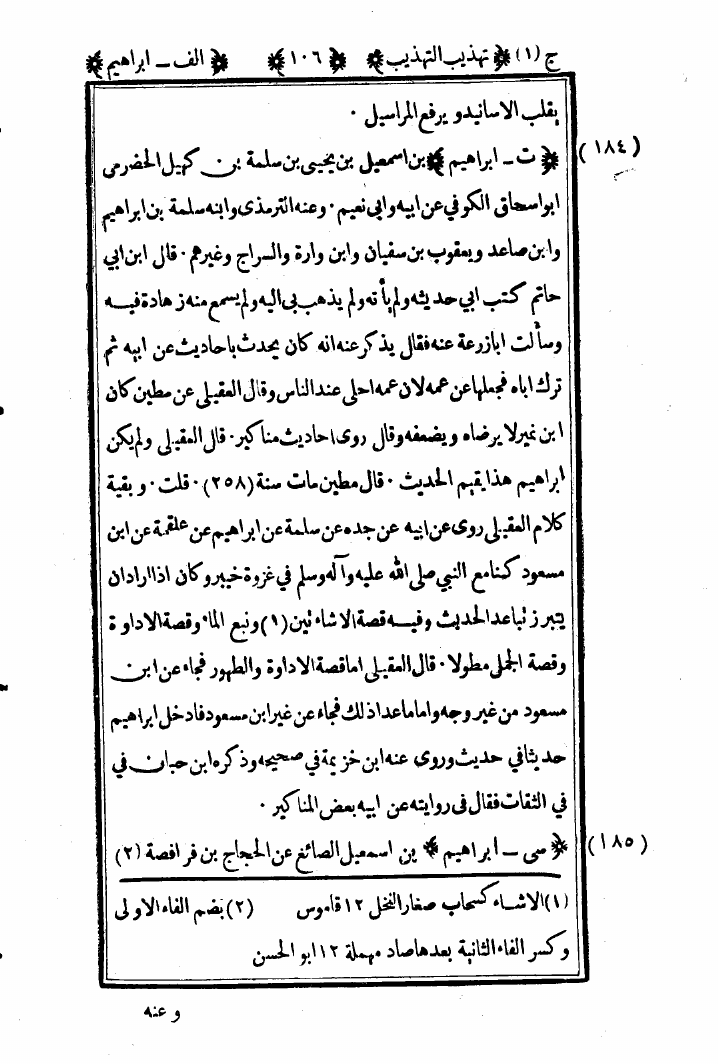 ج (١) ﴿ تهذيب التهذيب ﴾ ﴿ ١٠٦ ﴾ ﴿ الف ـ ابراهيم ﴾
يقلب الاسانيدو يرفع المراسيل ٠
(١٨٤) ﴿ ت ـ ابراهيم ﴾ بن اسمعيل بن يحيى بن سلمة بن كهيل الحضرمى
ابواسحاق الكوفي عن ابيه وابي نعيم ٠ وعنه الترمذى وابنه سلمة بن ابراهيم
وابن صاعد ويعقوب بن سفيان وابن وارة والسراج وغيرهم ٠ قال ابن ابي
حاتم كتب ابي حديثه ولم يأ ته ولم يذهب بى اليه ولم يسمع منه ز هادة فيه
وسألت ابازرعة عنه فقال يذكر عنه انه كان يحدث باحاديث عن ابيه ثم
ترك اباه فجعلها عن عمه لان عمه احلى عند الناس وقال العقيلى عن مطين كان
ابن نمير لا يرضاه ويضعفه وقال روى احاديث مناكير ٠ قال العقيلى ولم يكن
ابراهيم هذا يقيم الحديث ٠ قال مطين مات سنة (٢٥٨) ٠ قلت ٠ و بقية
كلام العقيلى روى عن ابيه عن جده عن سلمة عن ابراهيم عن علقمة عن ابن
مسعود كنا مع النبي صلى الله عليه وآله وسلم في غزوة خيبر وكان اذا اراد ان
يتبرز تباعد الحديث وفيه قصة الاشاء تين (١) ونبع الماء وقصة الاداوة
وقصة الجمل مطولا ٠ قال العقيلى اما قصة الاداوة والطهور فجاء عن ابن
مسعود من غير وجه واما ماعدا ذلك فجاء عن غير ابن مسعود فادخل ابراهيم
حديثا في حديث وروى عنه ابن خزيمة في صحيحه وذكره ابن حبان في
في الثقات فقال فى روايته عن ابيه بعض المناكير ٠
(١٨٥) ﴿ سى ـ ابراهيم ﴾ بن اسمعيل الصائغ عن الحجاج بن فرافصة (٢)
(١) الاشاء كسحاب صغار النخل ١٢ قاموس (٢) بضم الفاء الاولى
وكسر الفاء الثانية بعدها صاد مهملة ١٢ ابو الحسن
و عنه